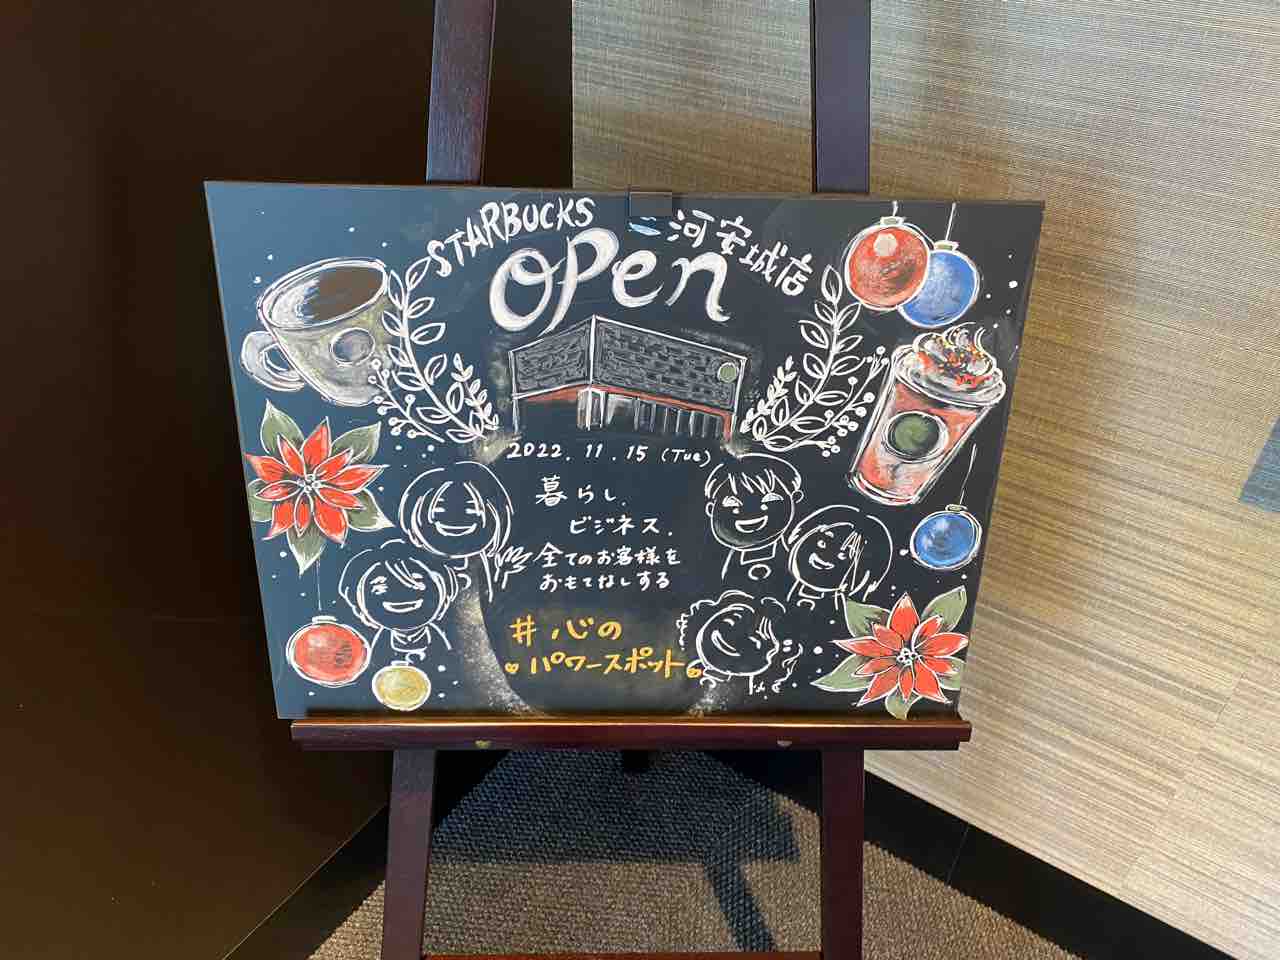 STARBUCKS
河安城店
OPEN
2022.11.15 (Tue)
暮らし、
ビジネス、
全てのお客様を
おもてなしする
#心の
パワースポット